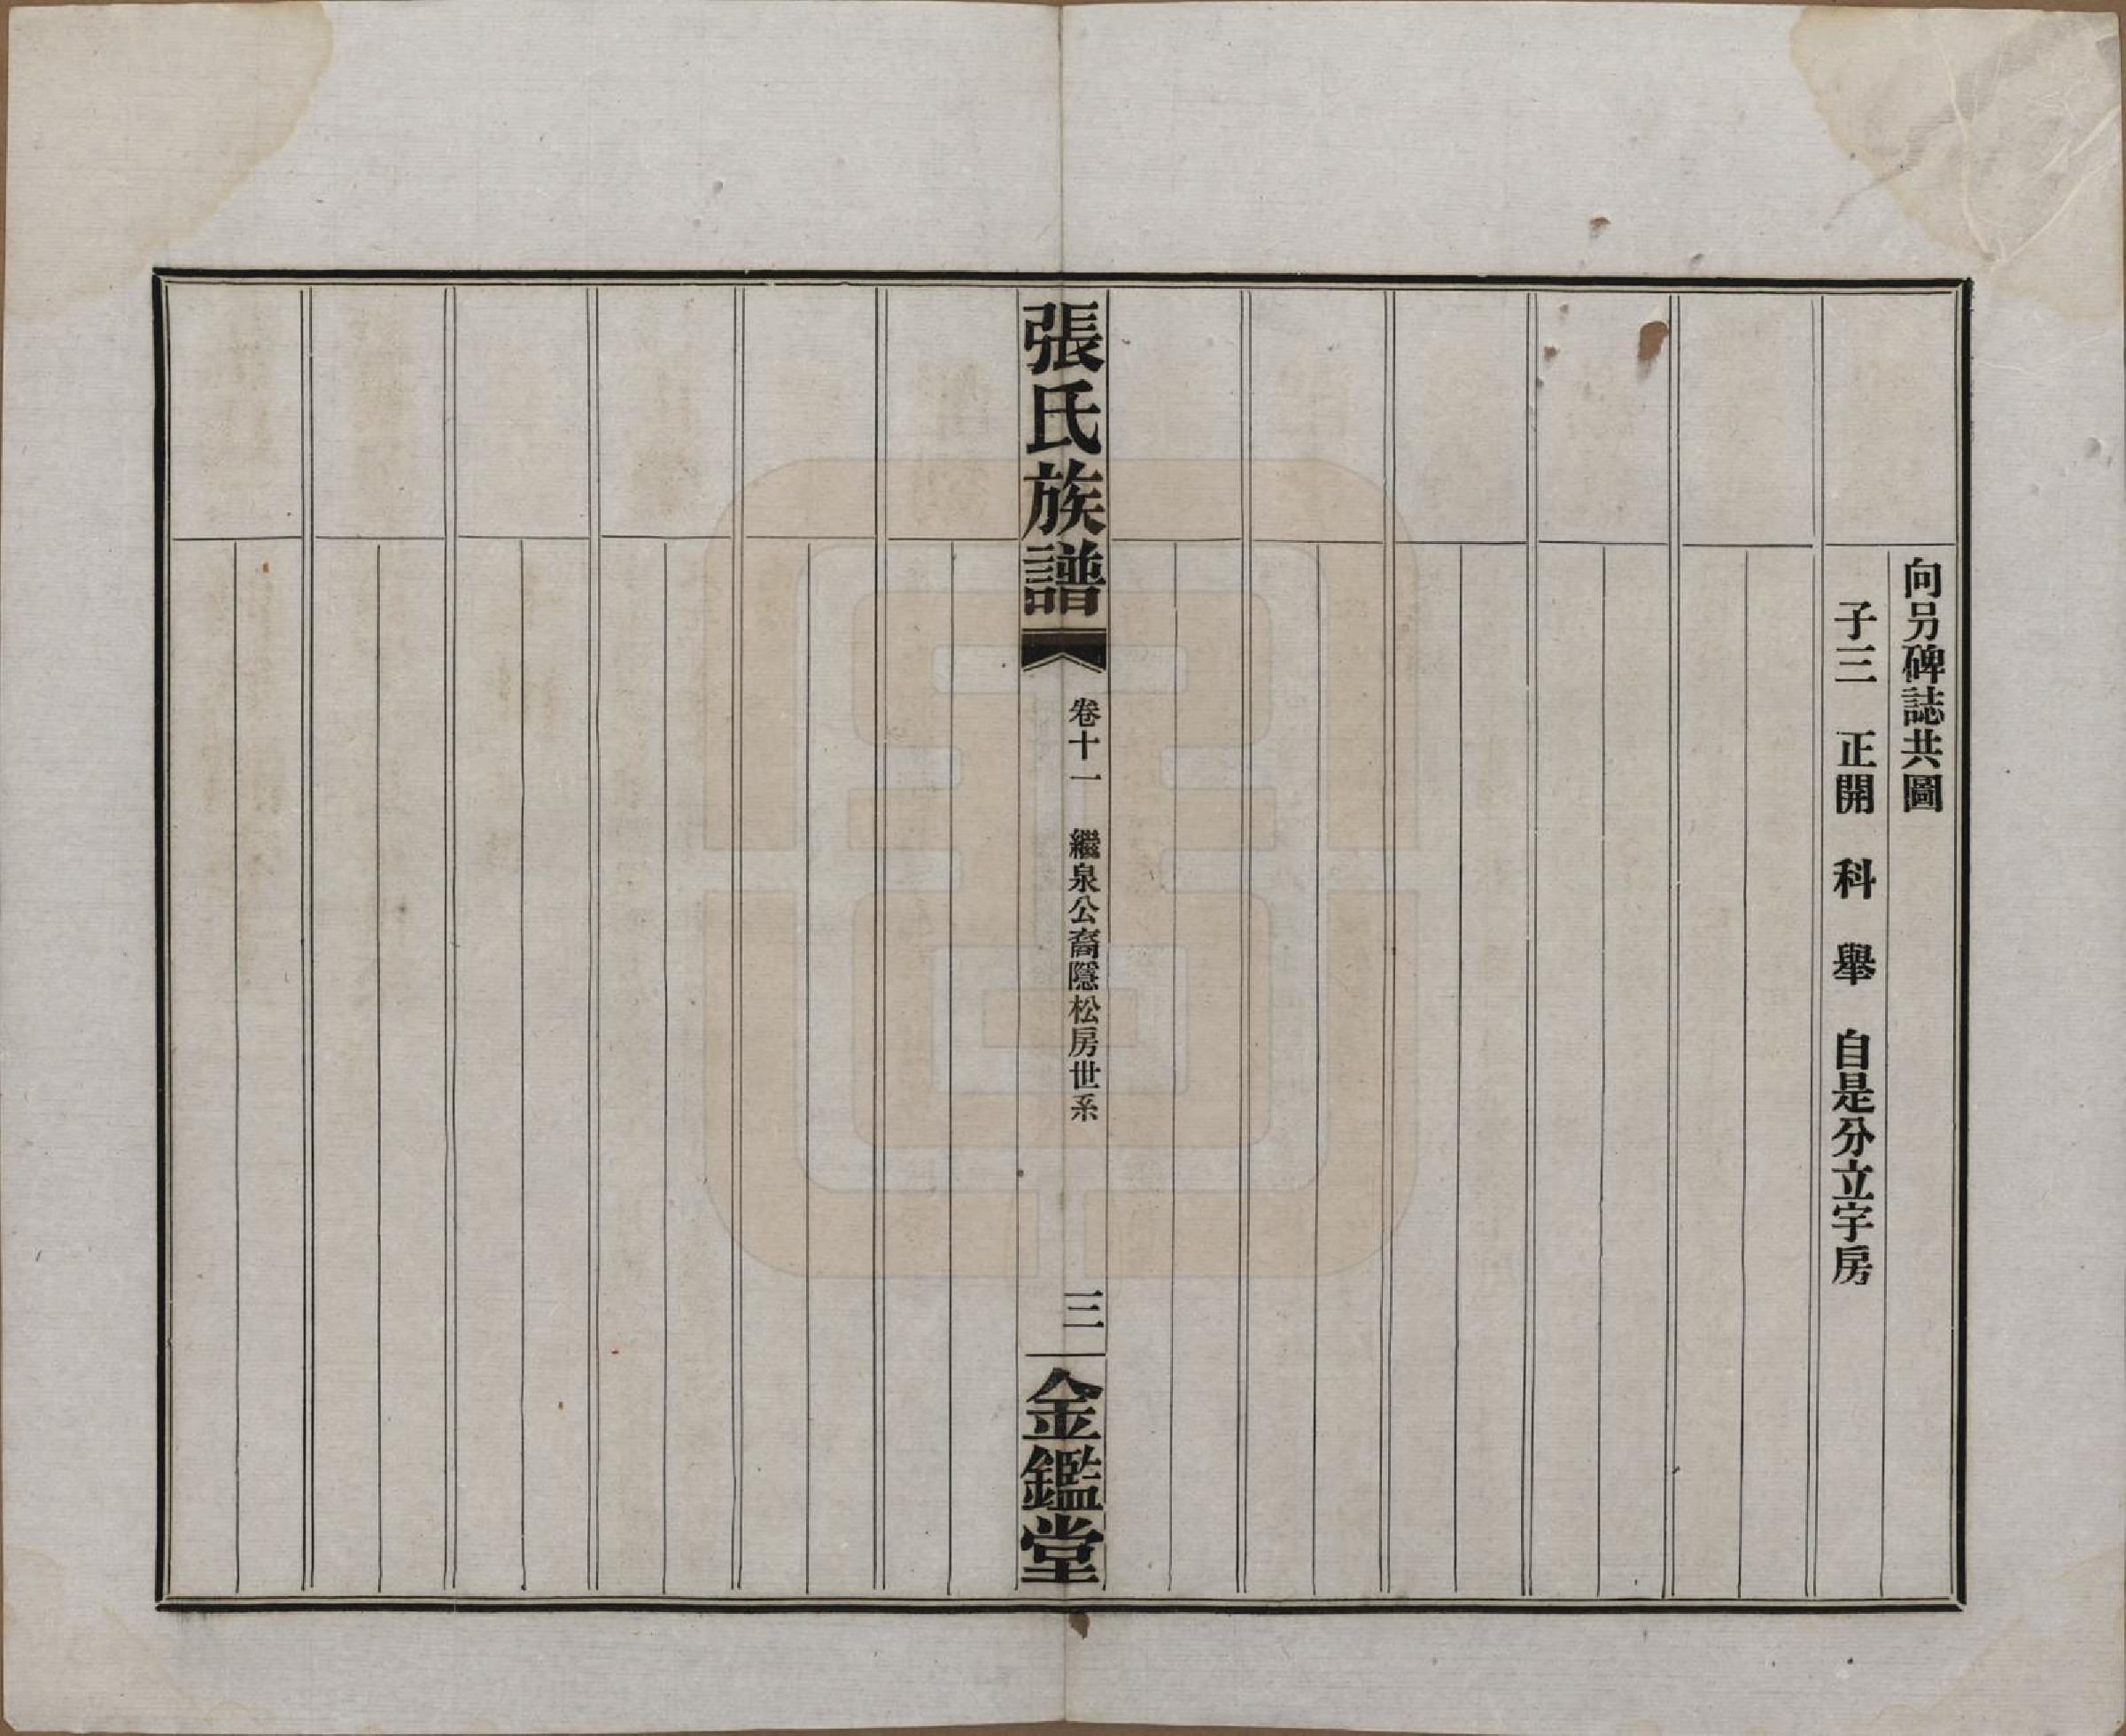 向另碑誌共圖
子三 正開 科 舉 自是分立宇房
張氏族譜
卷十一 繼泉公裔隱松房世系
三
金鑑堂